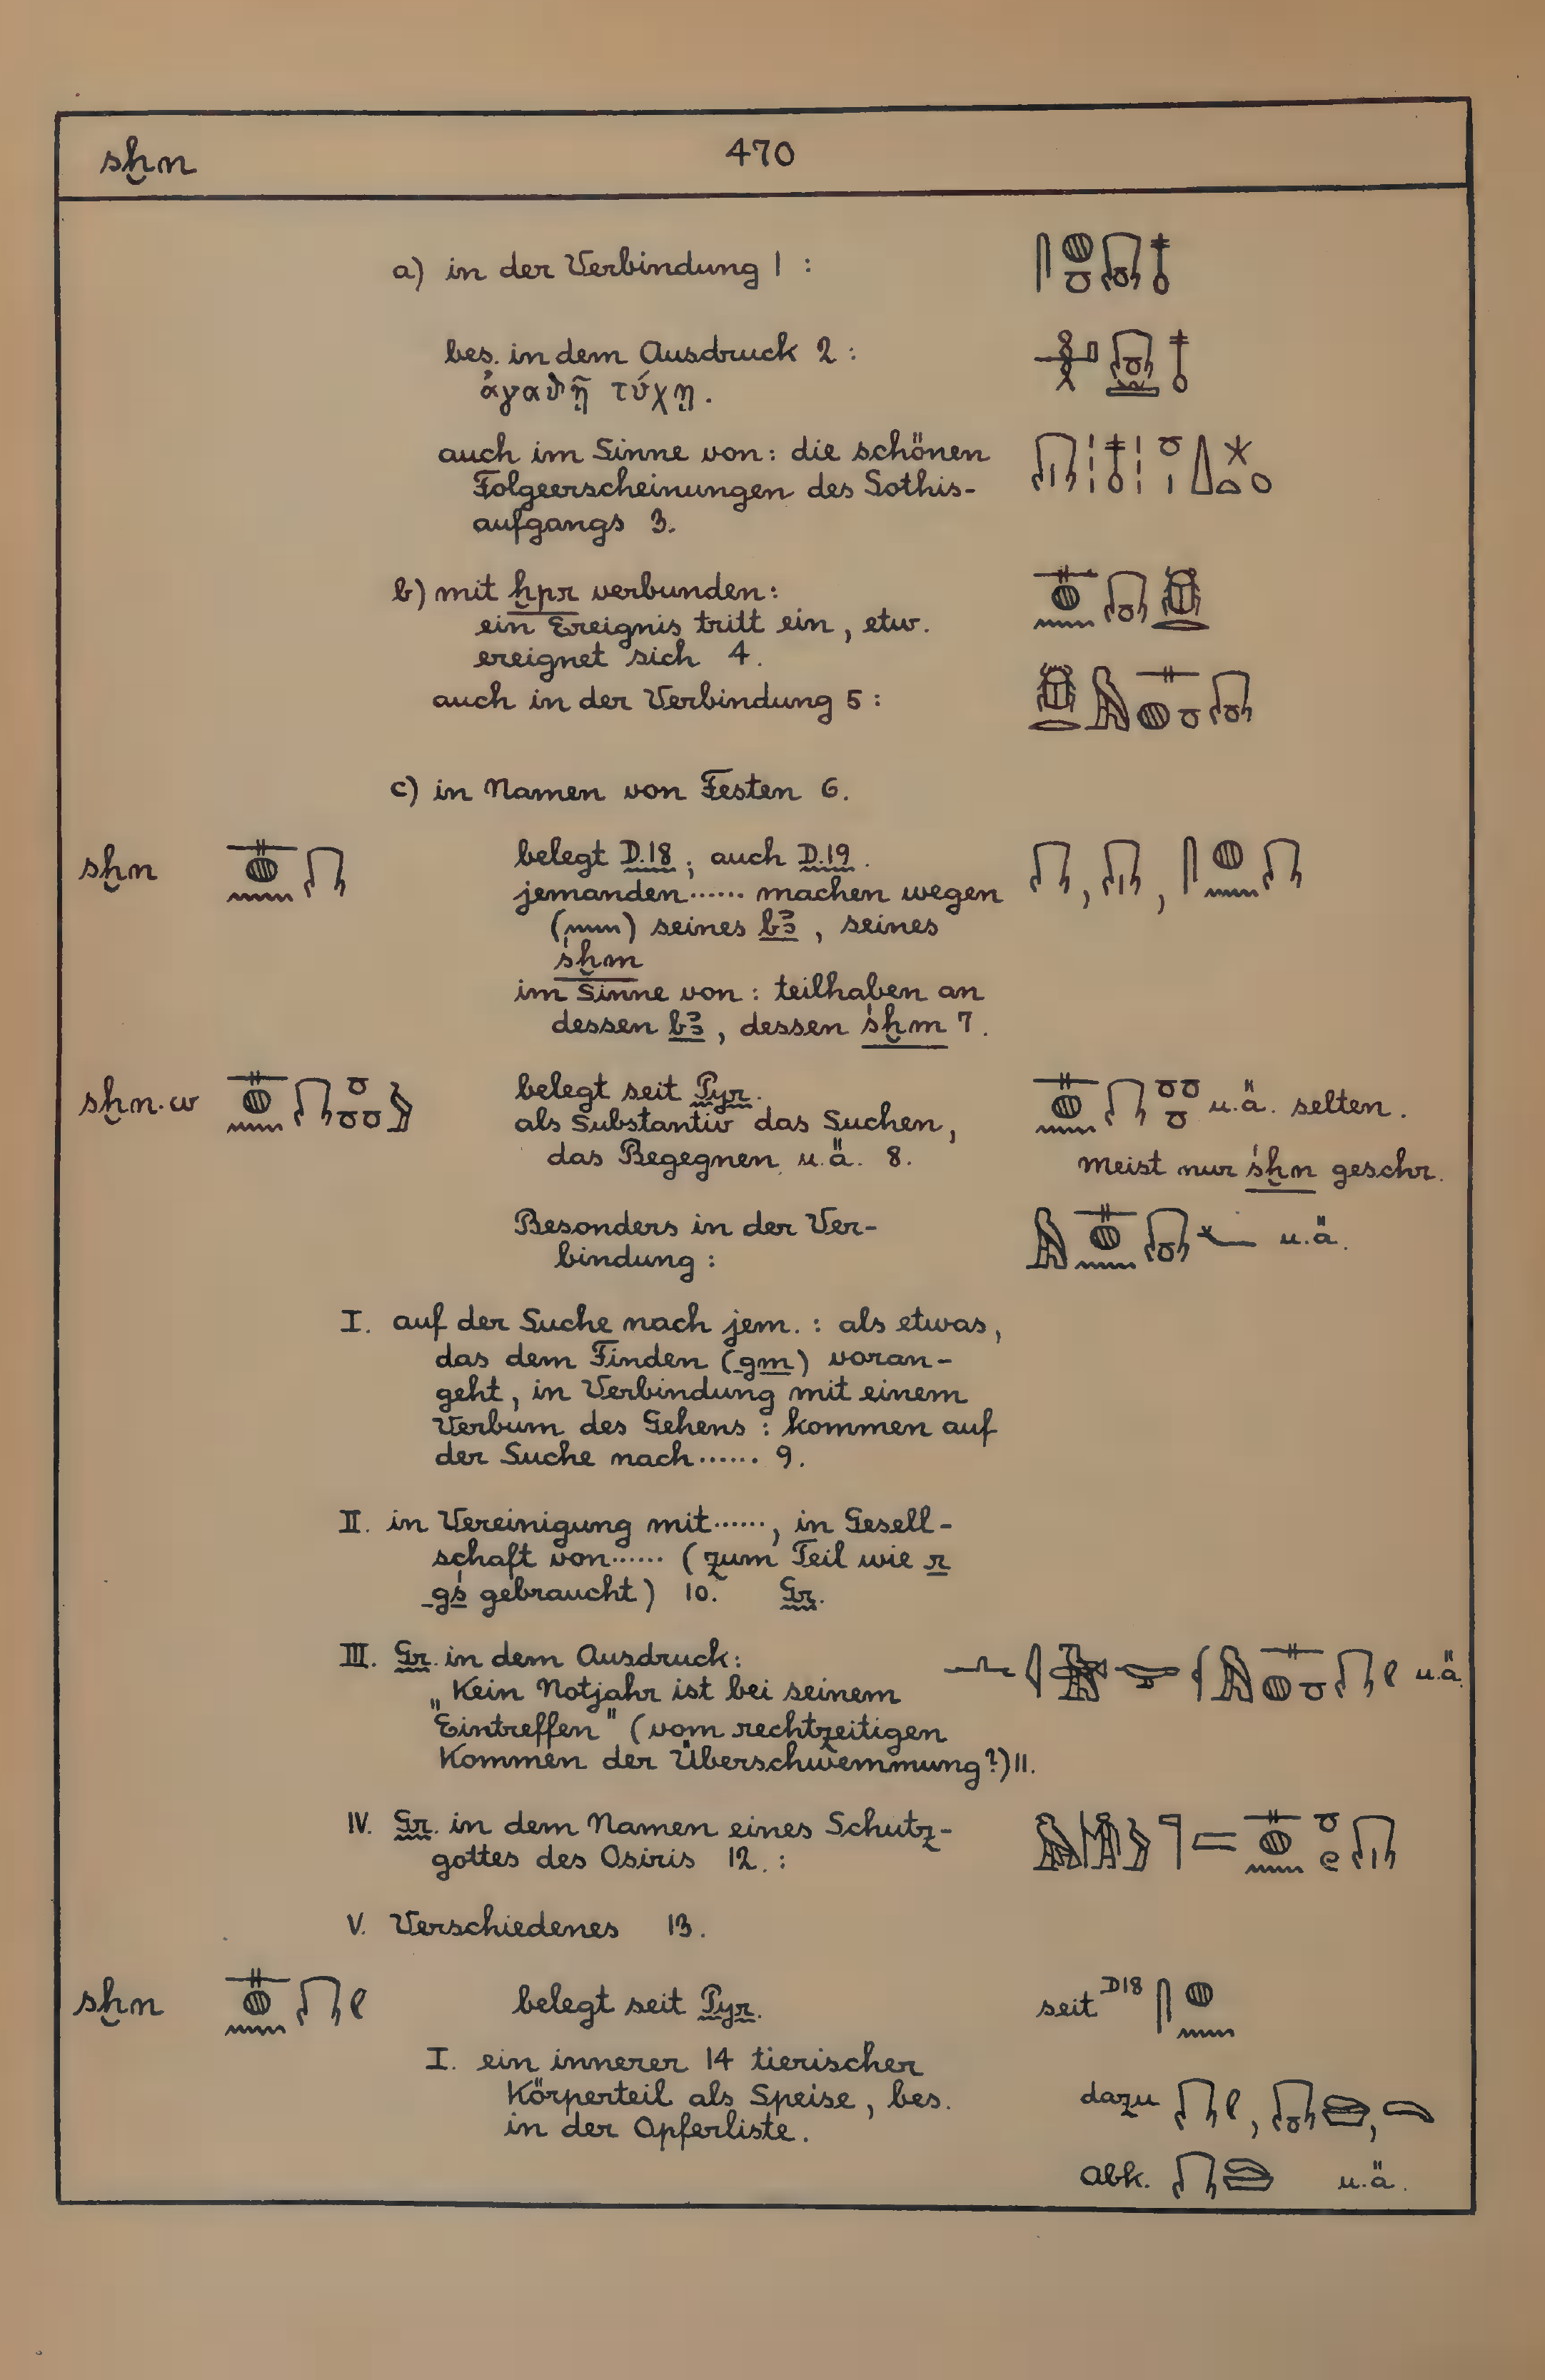 sḫn 470
a) in der Verbindung 1 :
bes. in dem Ausdruck 2 :
ἀγαθῇ τύχῃ.
auch im Sinne von: die schönen
Folgeerscheinungen des Sothis-
aufgangs 3.
b) mit ḫpr verbunden:
ein Ereignis tritt ein, etw.
ereignet sich 4.
auch in der Verbindung 5 :
c) in Namen von Festen 6.
sḫn belegt D.18 ; auch D.19.
jemanden...... machen wegen
( ) seines bꜣ , seines
śḫm
im Sinne von : teilhaben an
dessen bꜣ , dessen śḫm 7.
sḫn.w belegt seit Pyr.
als Substantiv das Suchen, u.ä. selten.
das Begegnen u.ä. 8. meist nur śḫn geschr.
Besonders in der Ver- u.ä.
bindung :
I. auf der Suche nach jem. : als etwas,
das dem Finden (gm) voran-
geht, in Verbindung mit einem
Verbum des Gehens : kommen auf
der Suche nach...... 9.
II. in Vereinigung mit......, in Gesell-
schaft von...... (zum Teil wie r
gś gebraucht) 10. Gr.
III. Gr. in dem Ausdruck: u.ä.
„Kein Notjahr ist bei seinem
Eintreffen" (vom rechtzeitigen
Kommen der Überschwemmung?) 11.
IV. Gr. in dem Namen eines Schutz-
gottes des Osiris 12. :
V. Verschiedenes 13.
sḫn belegt seit Pyr. seit D18
I. ein innerer 14 tierischer
Körperteil als Speise, bes. dazu , ,
in der Opferliste.
abk. u.ä.